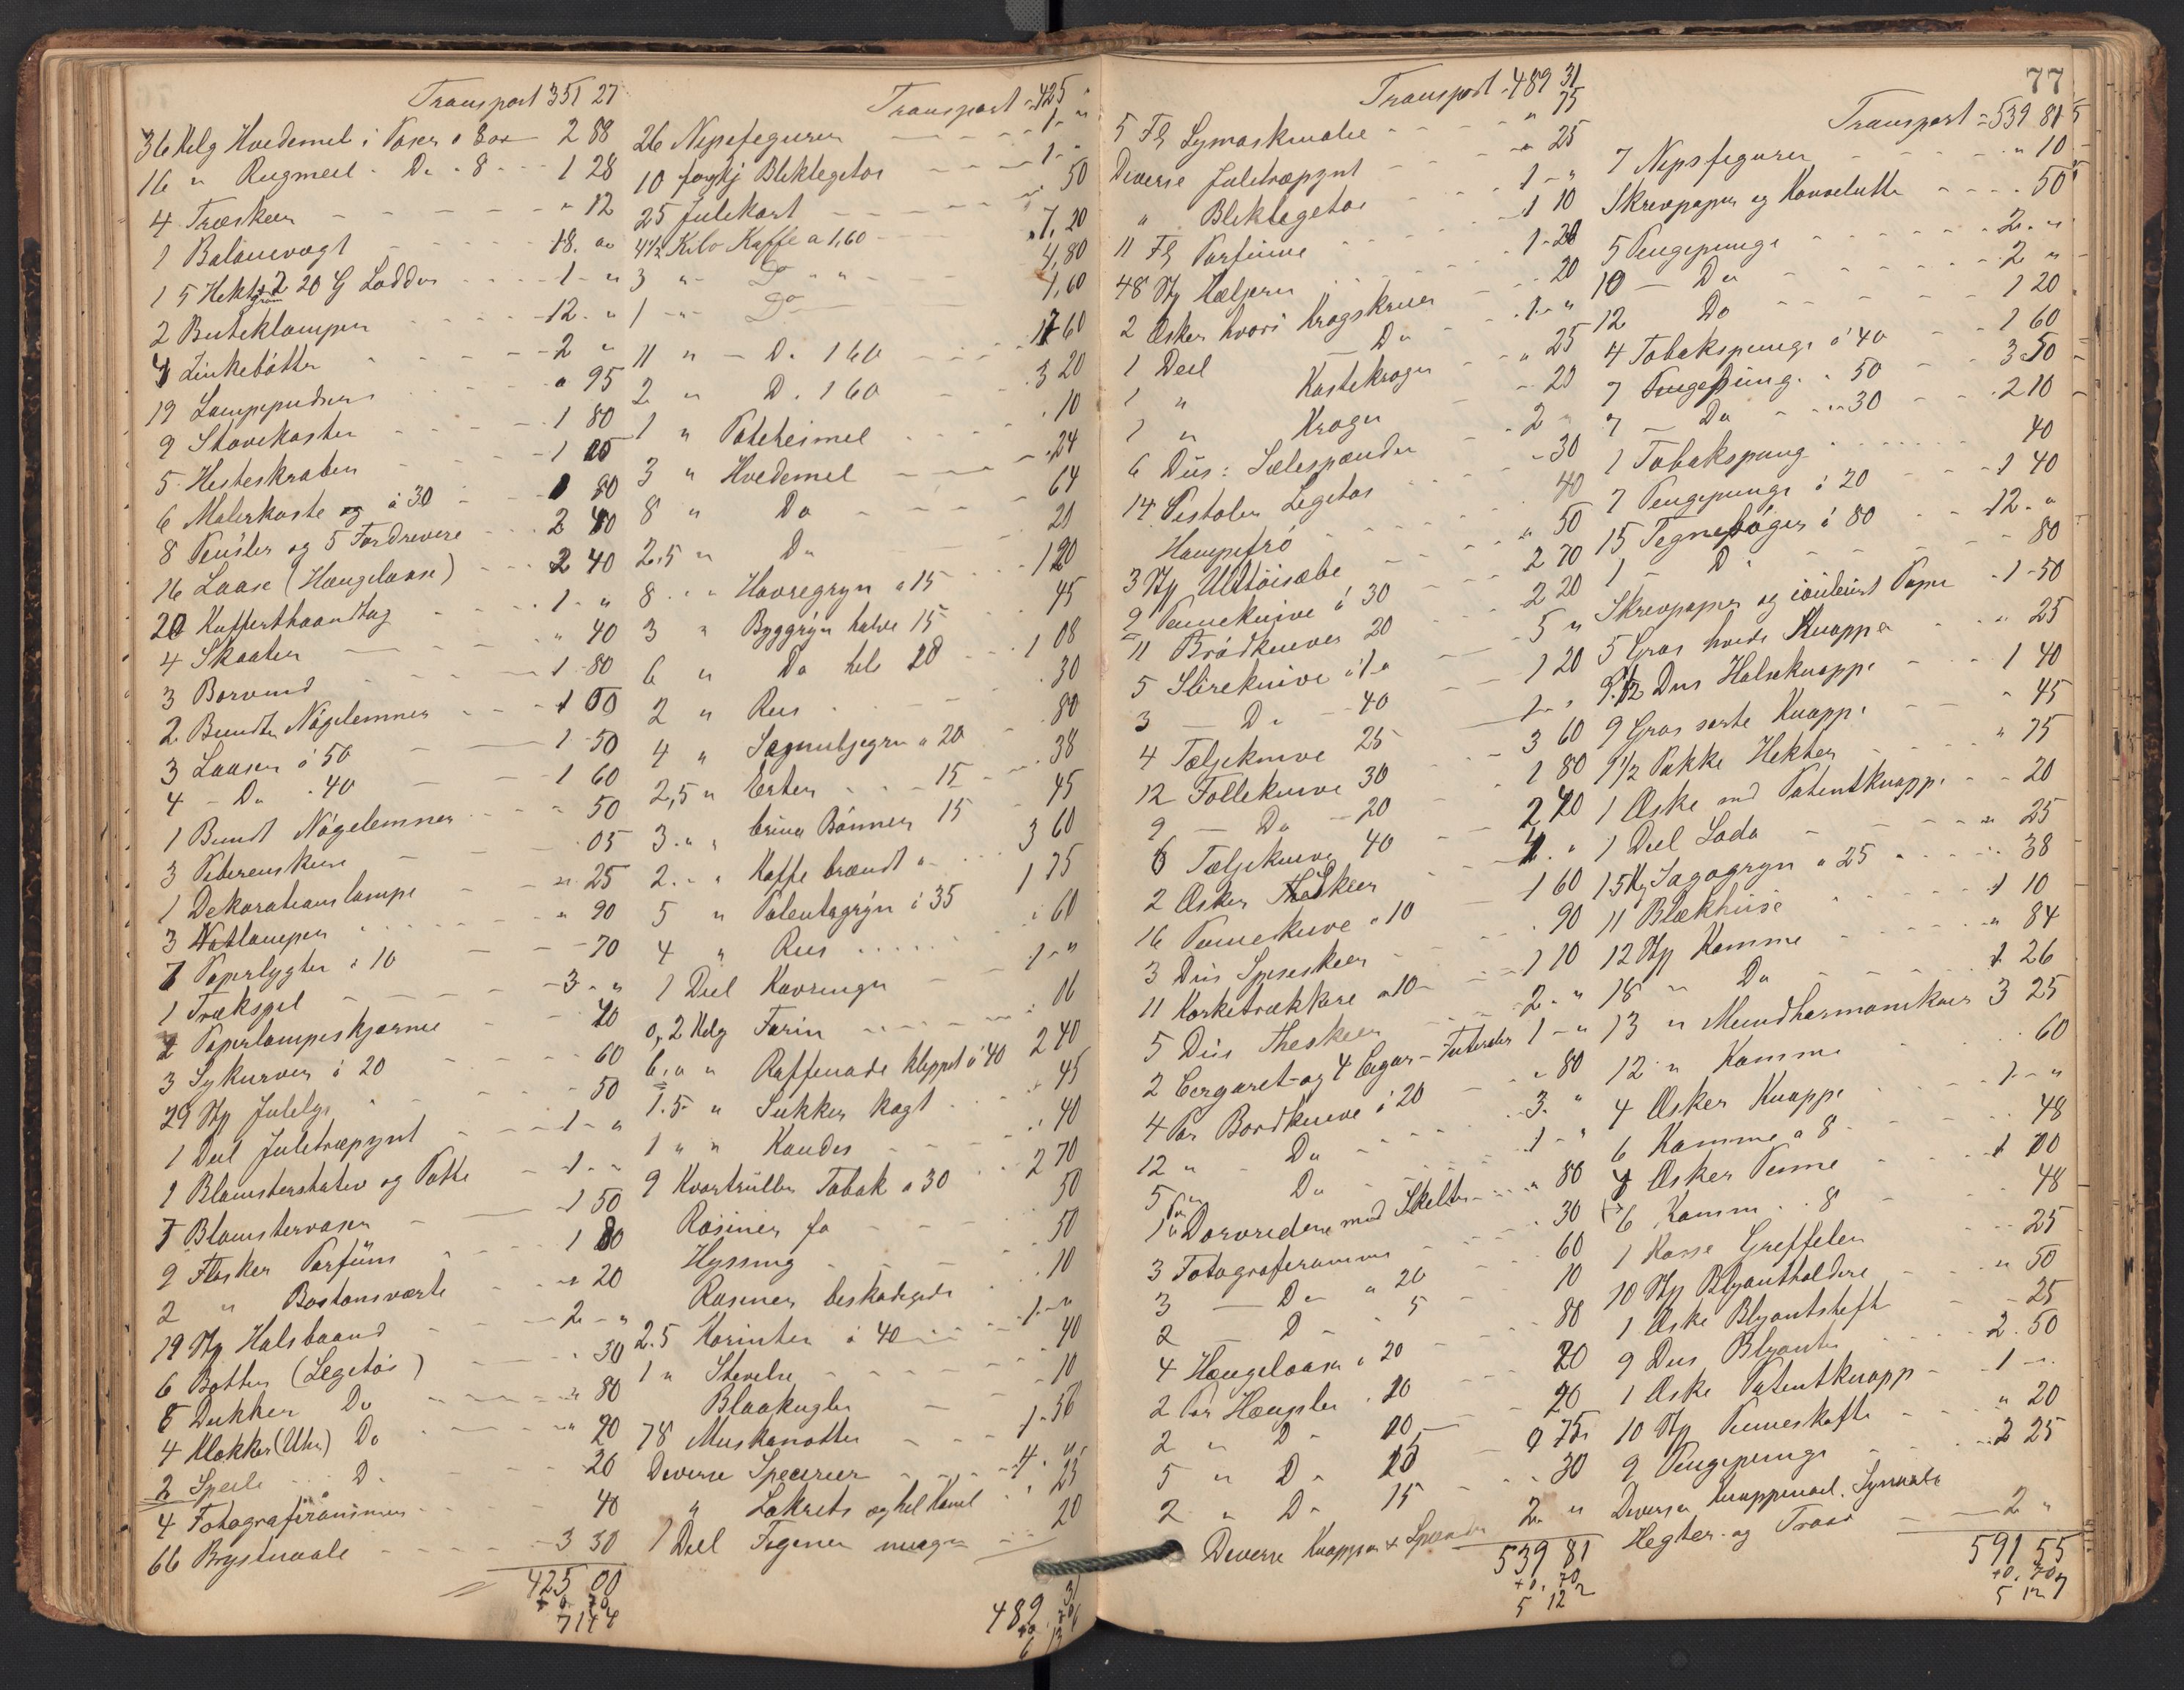 Transport 351 27
36 Kilg Hvedemel i Poser a 8 øre 2 88
16 " Rugmeel - Do - 8 - 1 28
4 Træskeer " 12
1 Balancevægt 18. 00
1 5 Hekto gram 2 20 G Lodder 1 - "
2 Butiklamper 12. "
4 Zinkebøtter 2 "
19 Lampepudsere " 95
9 Støvekoster 1 80
5 Hesteskraber 1 05
6 Malerkoste og a 30 1 80
8 Pensler og 5 Fordrevere 2 40
16 Laase (Hængelaase) 2 40
20 Kufferthaandtag 1 - "
4 Skaater " 40
3 Borvind 1 80
2 Bundter Nøgelemner 1 00
3 Laaser á 50 1 50
4 - Do - 40 1 60
1 Bundt Nøgelemner 50
3 05
1 Dekorationslampe " 25
3 Natlamper " 90
7 Papirlygter a 10 70
1 Trækspil 3. "
2 Papirlampeskjærme 40
3 Sykurver á 20 60
29 Stk Julelys 50
1 Deel Juletræpynt 1 - "
1 Blomsterstativ og Potte 1 - "
7 Blomstervaser 1 50
9 Flasker Parfüm 1 80
2 " Bartonsværte " 20
19 Stk Halsbaand 2 - "
6 Bøtter (Legetøi) 30
8 Dukker Do " 80
4 Klokker (Uhr) Do " 20
2 Speile Do 20
4 Fotografirammer 40
66 Brystnaale 3 30
425 00
+ 0. 70
7 14 4
Transport 425 "
26 Nipsfigurer 1 - "
10 forskj Bliklegetøi 1 - "
25 Julekort 50
4 1/2 Kilo Kaffe a 1,60 7,20
3 " Do " 4,80
1 " Do 1,60
11 " - Do 1 60 17 60
2 " D. 1 60 3 20
1 " Potetesmel 10
3 " Hvedemel 24
8 " Do 64
2,5 " Do 20
8 " Havregryn a 15 1 20
3 " Byggryn halve 15 45
6 " Do hele 18 1 08
2 " Ris 30
4 " Semuljegryn a 20 80
2,5 " Erter 15 38
3 " brune Bønner 15 45
2 " Kaffe brændt a 3 60
5 " Potetesgryn á 35 1 75
4 " Ris " 60
1 Deel Kavringer 1 - "
0,2 Kilg Farin 16
6,0 " Raffinade klippet á 40 2 40
1.5 " Sukker kagt 45
1 " " Kandis 40
9 Kvartruller Tobak a 30 2 70
Rosiner fo 50
Hyssing 50
Rosiner beskadigede 10
2.5 Korinter á 40 1 - "
1 " Stivelse 40
Blaakugler 10
78 Muskanøtter 1. 56
Diverse Specerier 4 "
" Lakrits og hel Kanel 25
1 Deel Fogener 20
489 31
+0. 70
Transport 489 31
5 Fl Symaskinolie " 75
Diverse Juletræpynt " 25
" Bliklegetøi 1 - "
11 Fl Parfume 1 10
48 Stk Hæljern 1 20
2 Æsker hvori Kragskruer 20
1 Deel Do 1 - "
1 " Kastekroger " 25
1 " Kroger 20
6 Dus: Sælespænder 2 "
14 Pistoler Legetøi 30
Hampefrø 40
3 Stk Uldtøisæbe " 50
9 Penneknive á 30 2 70
11 Brødkniver 20 2 20
5 Slireknive á 1 " 5 "
3 - Do - 40 1 20
4 Tæljeknive 25 1 - "
12 Follekniive 30 3 60
9 - Do - 20 1 80
6 Tæljeknive 40 2 40
2 Æsker Theskeer 1. "
16 Penneknive a 10 1 60
3 Dus Spiseskeer 90
11 Korketrækkere a 10 1 10
5 Dus Theskeer 2. "
2 Cigaret- og 4 Cigar-Futteraler 1 - "
4 Par Bordknive á 20 " 80
12 " Do 3. "
5 Par Do 1 - "
1 " Dørvridere med Skilter " 80
3 Fotografirammer 30
3 - Do " 20 60
2 - D - 5 10
4 Hængelaase á 20 80
2 Par Hængsler 10 20
2 " D - 10 20
5 " D - 15 75
2 " D - 15 30
Diverse Knapper & Spænder 2. "
539 81
+ 0. 70
5 12
77
Transport 539 81
7 Nipsfigurer " 10
Skrevpapir og Konvolutter 50
5 Pengepunge 2. "
10 - Do 2 "
12 Do 1 20
4 Tobakspunge á 40 1 60
7 Pengepung. a 50 3 50
7 - Do - 30 2 10
1 Tobakspung 40
7 Pengepunge á 20 1 40
15 Tegnebøger á 80 12. "
1 - D " 80
Skrevpapir og Papir 1 - 50
5 Gros hvide Knapper " 25
9 1/2 Dus Halsknappe 1 40
9 Gros sorte Knapp. " 45
9 1/2 Pakke Hekter " 75
1 Æske med Patentknapp. 20
1 Deel Soda " 25
1 5 Kg Sagogryn a 25 38
11 Blækhuse 1 10
12 Stk Kamme " 84
18 " Do 1 26
13 " Mundharmonikaer 3 25
12 " Kamme 60
4 Æsker Knappe 1 - "
6 Kamme a 8 48
4 Æsker Penne 1 00
6 Kamm. . 8 48
1 Kasse Greffeler 25
10 Stk Blyantholdere " 50
1 Æske Blyantstift 25
9 Dus Blyanter 2. 50
1 Æske Patentknapp 1 - "
10 Stk Penneskafte " 20
9 Pengepunge 2 25
Diverse Knappenaal. Synaale
Hegter og Traad 2 "
591 55
+0. 70
5 12 7